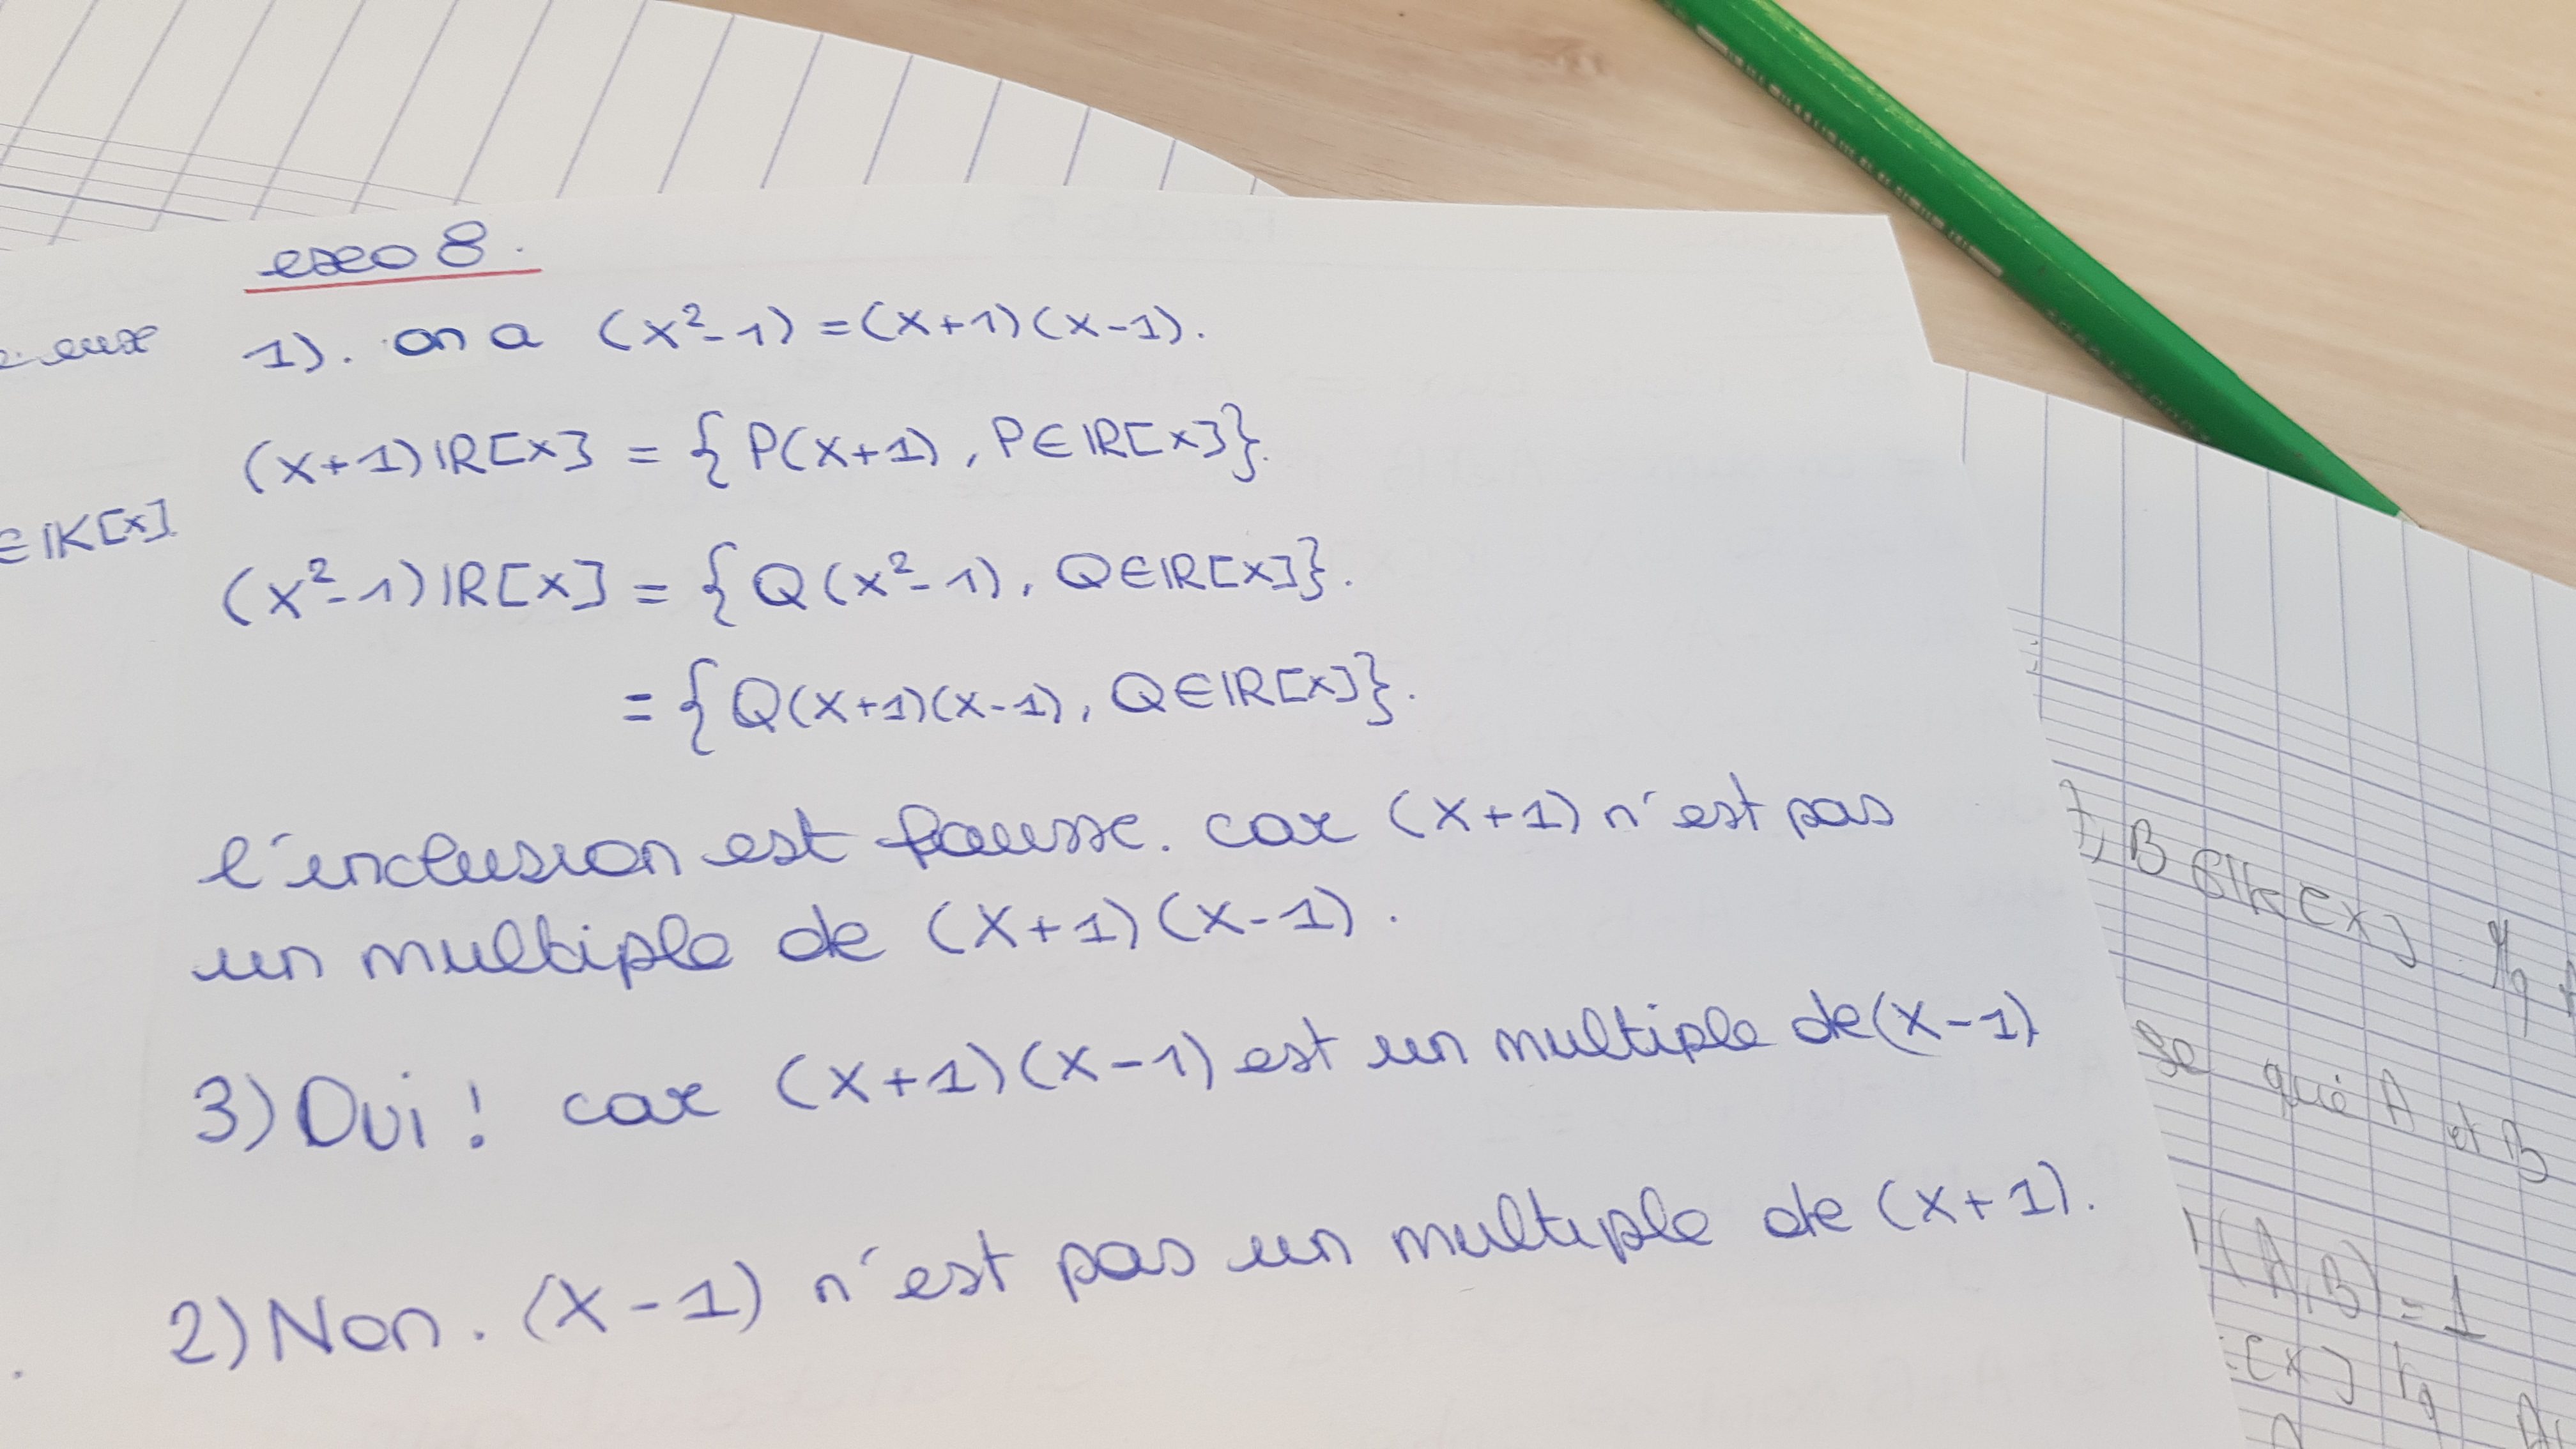 exo 8.
1). on a (x²-1) = (x+1)(x-1).
(x+1)IR[x] = {P(x+1), P∈IR[x]}.
∈IK[x]
(x²-1)IR[x] = {Q(x²-1), Q∈IR[x]}.
= {Q(x+1)(x-1), Q∈IR[x]}.
l'inclusion est fausse. car (x+1) n'est pas
un multiple de (x+1)(x-1).
3) Oui ! car (x+1)(x-1) est un multiple de (x-1)
2) Non. (x-1) n'est pas un multiple de (x+1).
, B ∈ IK[x]
que qui A et B
(A, B) = 1